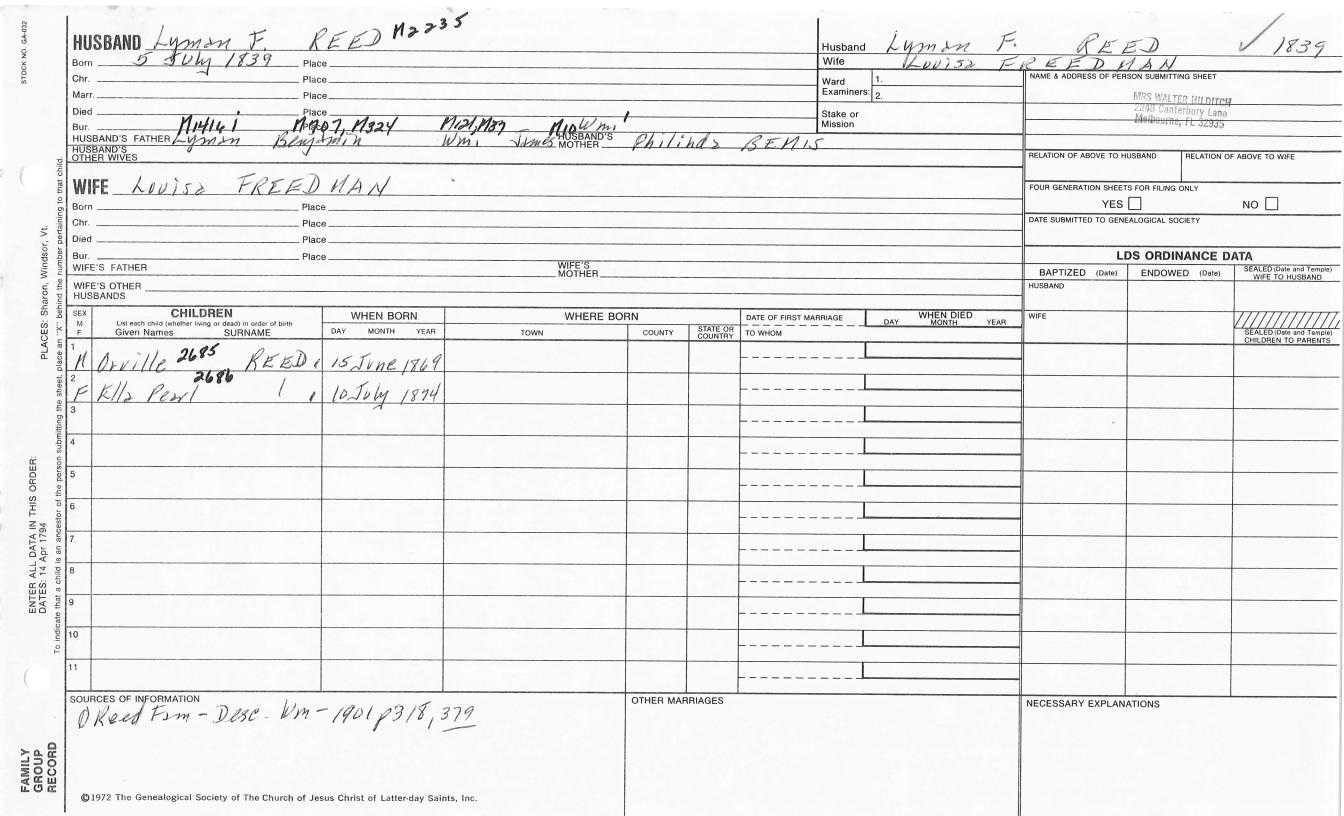 STOCK NO. GA-032
HUSBAND Lyman F. REED M2235
Born 5 July 1839 Place
Chr. Place
Marr. Place
Died Place
Bur. M1416 i M707, M324 M121, M37 M10 Wm. 1
HUSBAND'S FATHER Lyman Benjamin Wm. James HUSBAND'S MOTHER Philinda BEMIS
HUSBAND'S OTHER WIVES
WIFE Louisa FREEDMAN
Born Place
Chr. Place
Died Place
Bur. Place
WIFE'S FATHER WIFE'S MOTHER
WIFE'S OTHER HUSBANDS
Husband Lyman F. REED ✓ 1839
Wife Louisa FREEDMAN
Ward Examiners: 1.
2.
Stake or Mission
NAME & ADDRESS OF PERSON SUBMITTING SHEET
MRS WALTER HILDITCH
2248 Canterbury Lane
Melbourne, FL 32935
RELATION OF ABOVE TO HUSBAND RELATION OF ABOVE TO WIFE
FOUR GENERATION SHEETS FOR FILING ONLY
YES NO
DATE SUBMITTED TO GENEALOGICAL SOCIETY
LDS ORDINANCE DATA
BAPTIZED (Date) ENDOWED (Date) SEALED (Date and Temple) WIFE TO HUSBAND
HUSBAND
WIFE
SEALED (Date and Temple) CHILDREN TO PARENTS
SEX M F
CHILDREN
List each child (whether living or dead) in order of birth
Given Names SURNAME
WHEN BORN
DAY MONTH YEAR
WHERE BORN
TOWN COUNTY STATE OR COUNTRY
DATE OF FIRST MARRIAGE
TO WHOM
WHEN DIED
DAY MONTH YEAR
1 M Orville 2685 REED 15 June 1869
2 F Ella Pearl 2686 10 July 1874
3
4
5
6
7
8
9
10
11
SOURCES OF INFORMATION
Reed Fam - Desc. Wm - 1901 p318, 379
OTHER MARRIAGES
NECESSARY EXPLANATIONS
©1972 The Genealogical Society of The Church of Jesus Christ of Latter-day Saints, Inc.
FAMILY GROUP RECORD
ENTER ALL DATA IN THIS ORDER:
DATES: 14 Apr 1794
PLACES: Sharon, Windsor, Vt.
To indicate that a child is an ancestor of the person submitting the sheet, place an "X" behind the number pertaining to that child.